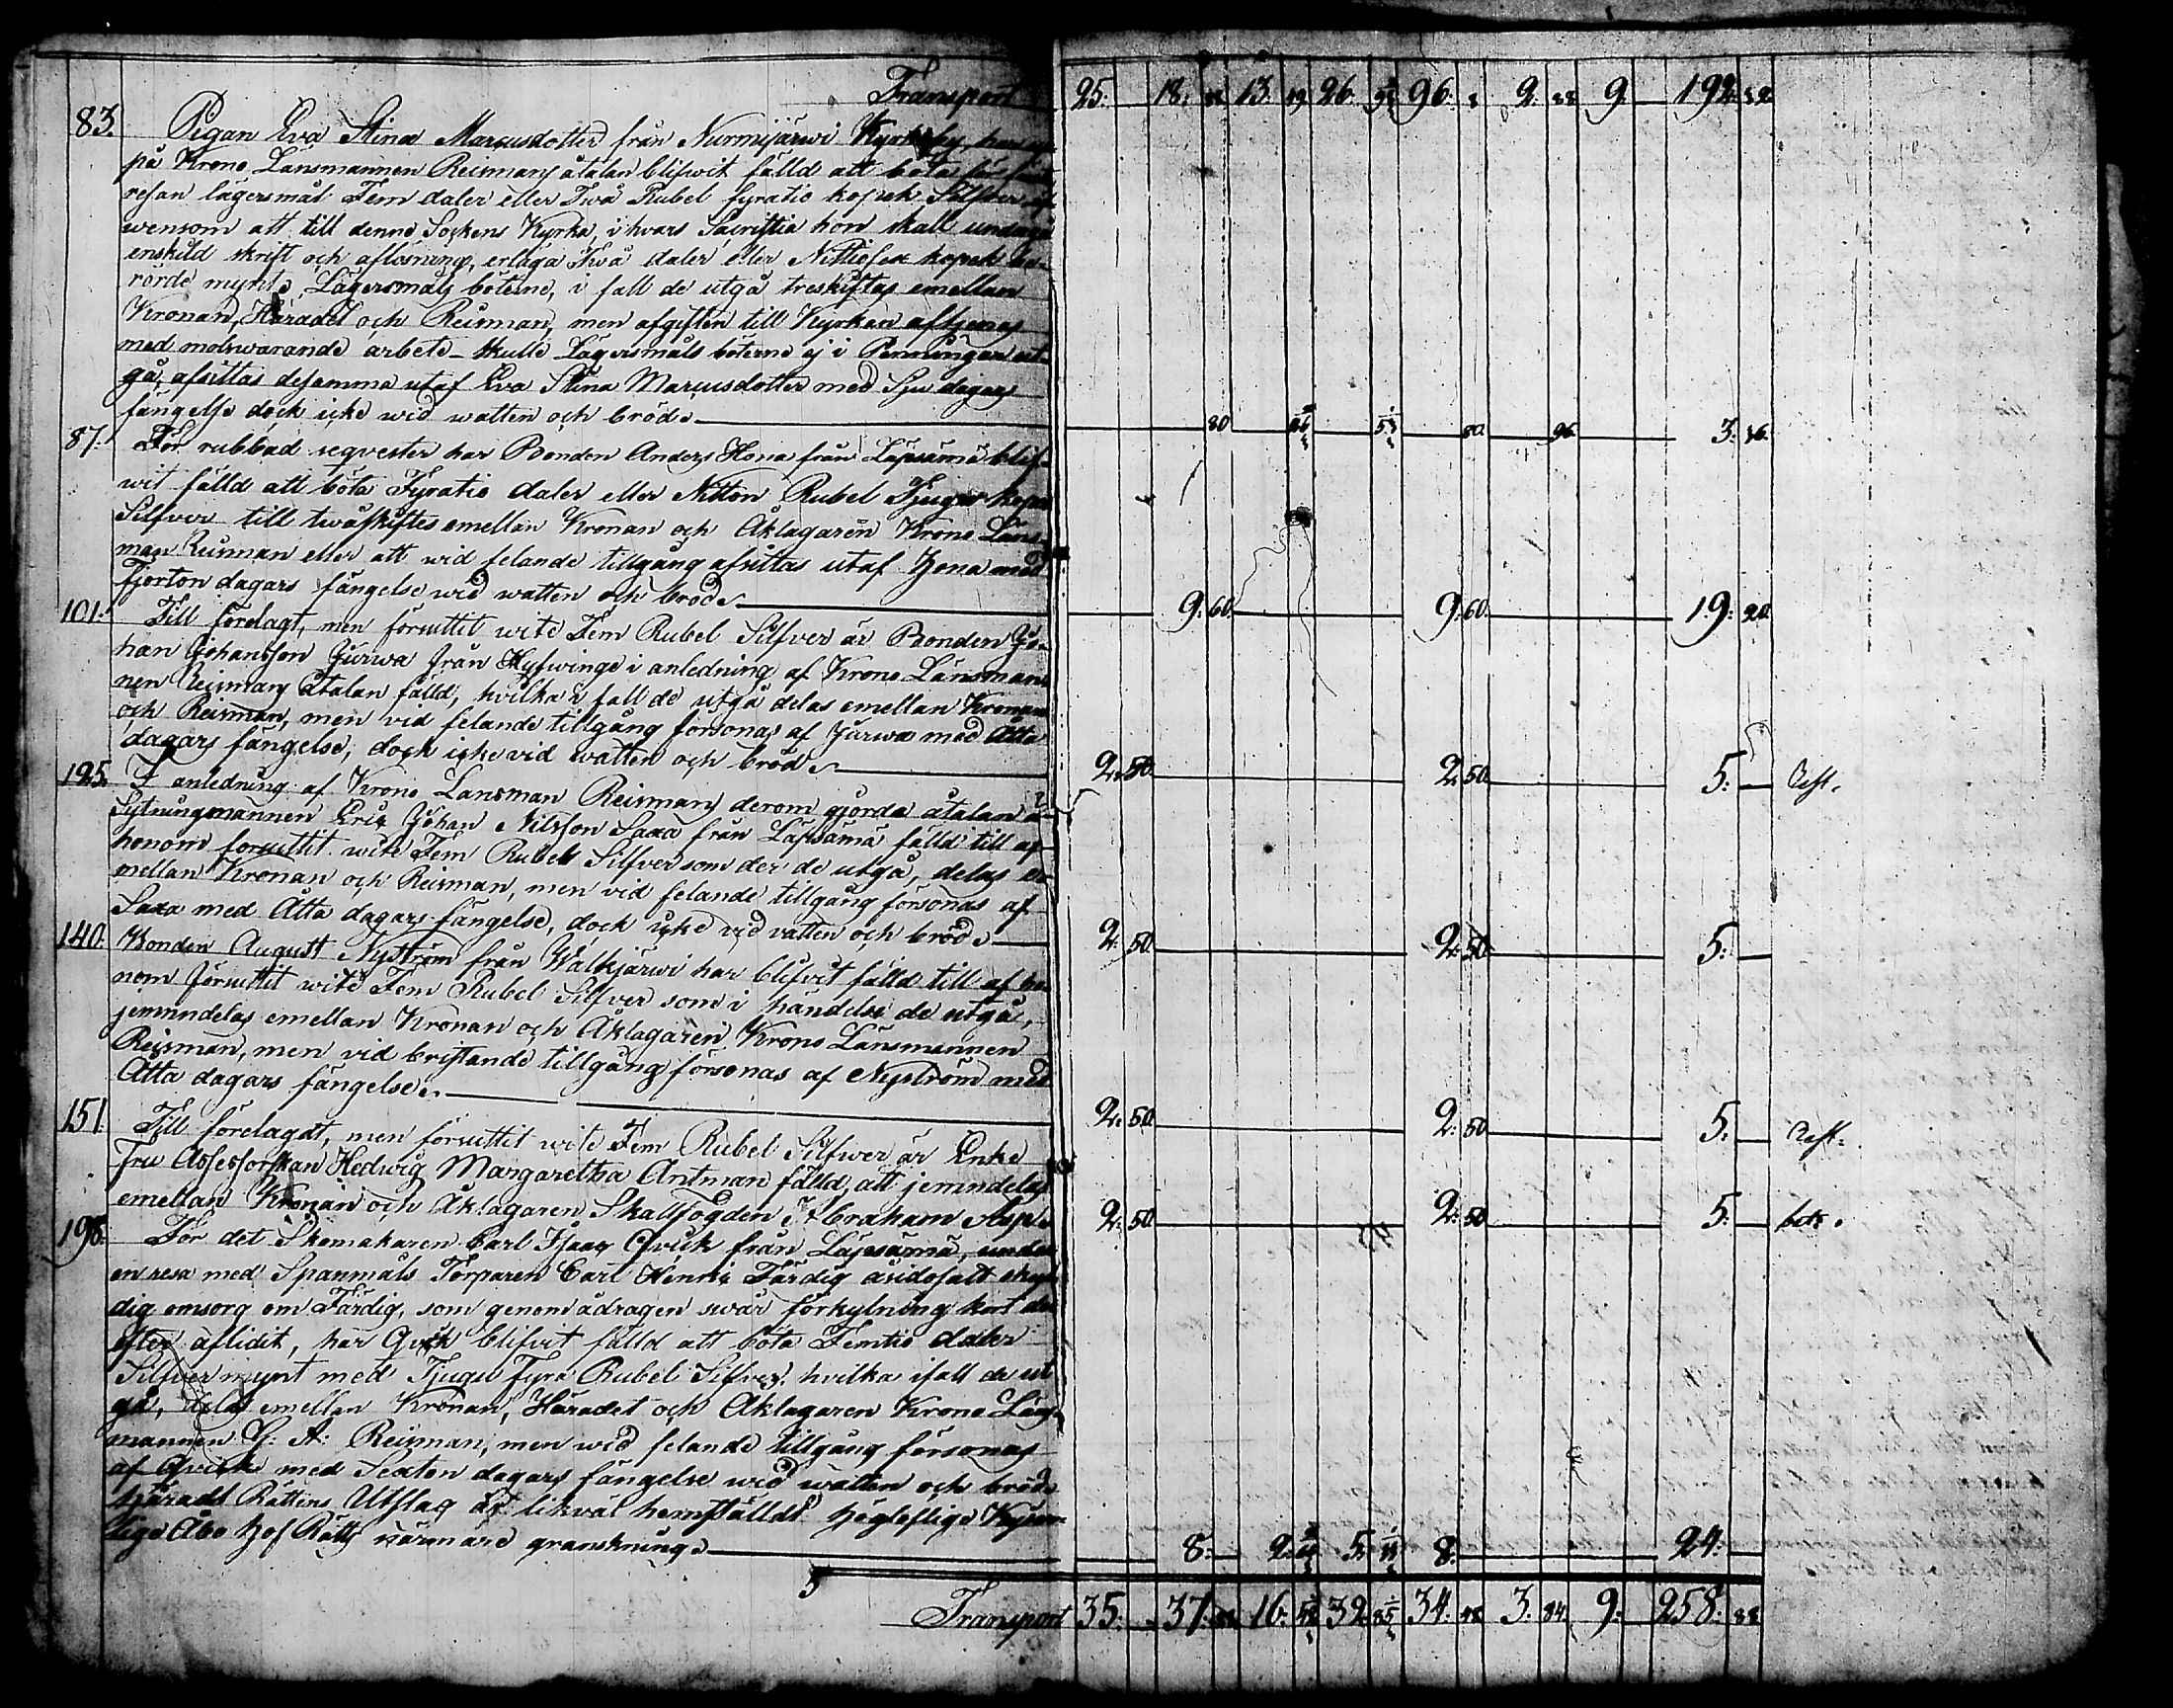 Transport 25: 18: 13. 19 26. 96. 8 2. 88 9. 192: 32.
83. Pigan Eva Stina Marcusdotter från Nurmijärwi Kyrkoby, har
på Krono Länsmannen Reismans åtalan blifwit fälld att böta för
resan lägersmål Fem daler eller Twå Rubel fyratio kopek Silfver
wensom att till denne Sockens Kyrka, i hvars Sacristia hon skall undergå
enskild skrift och aflösning, erlägga Två daler eller Nittiosex kopek be-
rörde mynt. Lägersmåls böterne, i fall de utgå treskiftas emellan
Kronan, Häradet och Reisman, men afgiften till Kyrkan aftjenas
med motswarande arbete - skulle Lägersmåls böterne ej i Penningar ut-
gå, afsittas desamma utaf Eva Stina Marcusdotter med Sju dagars
fängelse dock icke wid watten och bröd. 80 80. 96. 3. 36.
87. För rubbad seqvester har Bonden Anders Hona från Läpsämä blif-
wit fälld att böta Fyratio daler eller Nitton Rubel Tjugu kopek
Silfver till twåskiftes emellan Kronan och Åklagaren Krono Läns-
man Reisman eller att wid felande tillgång afsittas utaf Hona med
Fjorton dagars fängelse wid watten och bröd. 9. 60. 9. 60. 19. 20.
101. Till förelagt, men försuttit wite Fem Rubel Silfver är Bonden Jo-
han Johansson Jurwa från Hyfwinge i anledning af Krono Länsman-
nen Reismans åtalan fälld, hvilka i fall de utgå delas emellan Kronan
och Reisman, men vid felande tillgång försonas af Jurwa med Åtta
dagars fängelse, dock icke vid watten och bröd. 2. 50. 2. 50. 5. Rest.
125. I anledning af Krono Länsman Reismans derom gjorda åtalan är
Sytningsmannen Eric Johan Nilsson Saxa från Läpsämä fälld till af
honom försuttit wite Fem Rubel Silfver som der de utgå, delas e-
mellan Kronan och Reisman, men vid felande tillgång försonas af
Saxa med Åtta dagars fängelse, dock icke vid vatten och bröd. 2. 50. 2. 50. 5.
140. Bonden August Nyström från Walkjärwi har blifvit fälld till af ho
nom försuttit wite Fem Rubel Silfver som i händelse de utgå,
jemnndelas emellan Kronan och Åklagaren Krono Länsmannen
Reisman, men vid bristande tillgång försonas af Nyström med
Åtta dagars fängelse. 2. 50. 2. 50 5. Rest.
151. Till förelagdt, men försuttit wite Fem Rubel Silfwer är Enke
Fru Assessorskan Hedwig Margaretha Antman fälld, att jemndelas
emellan Kronan och Åklagaren Skallfogden Abraham Asp. 2. 50. 2. 50 5. bet.
198. För det Skomakaren Carl Isaac Qvick från Läpsämä, under
en resa med Spanmåls Torparen Carl Henric Färdig åsidosatt skyl
dig omsorg om Färdig, som genom ådragen swår förkylning kort der
efter aflidit, har Qvick blifvit fälld att böta Femtio daler
Silfver mynt med Tjugu Fyra Rubel Silfver. hvilka ifall de ut
gå, delas emellan Kronan, Häradet och Åklagaren Krono Läns-
mannen G: A: Reisman, men wid felande tillgång försonas
af Qvick med Sexton dagars fängelse wid watten och bröd.
Härads Rättens Utslag är likwäl hemställdt Höglofliga Kejser-
liga Åbo Hof Rätts närmare granskning. 8: 2. 5. 8. 24:
Transport 35: 37: 16: 32 34. 48 3. 84. 9: 258: 88